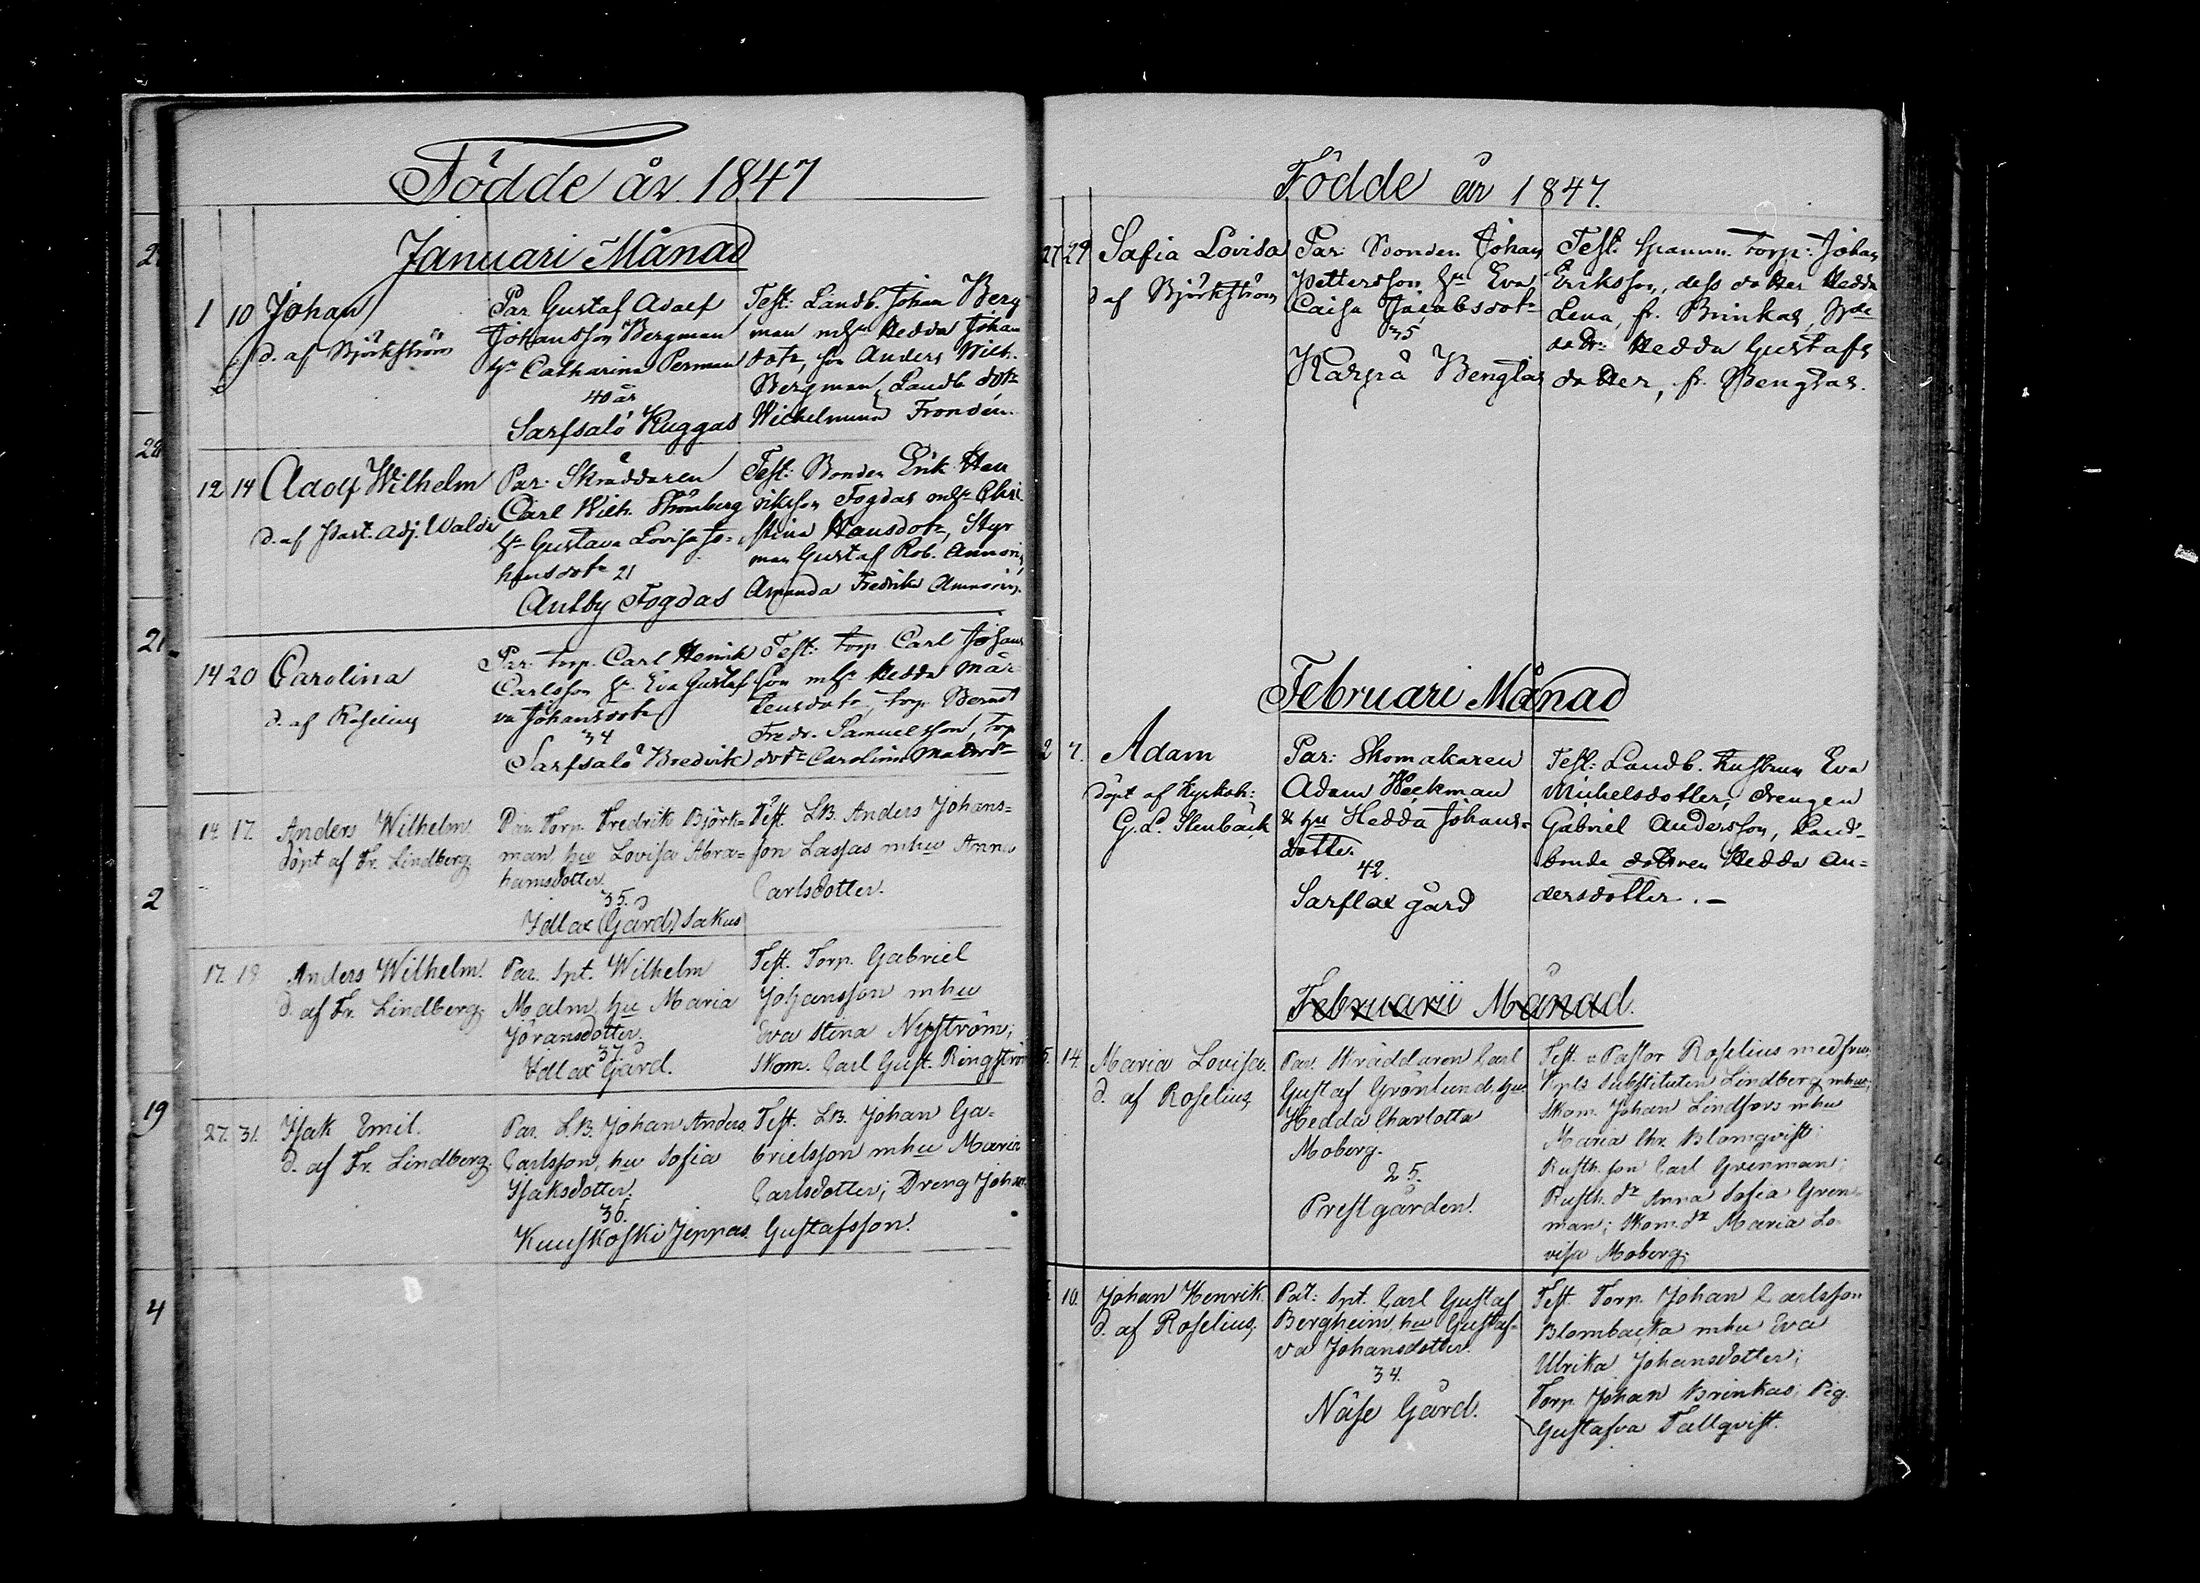 Födde år 1847
Januari Månad
1 10 Johan
d. af Björkström
Par. Gustaf Adolf
Johansson Bergman
hu Catharina Perman
40 år
Sarfsalö Kuggas
Test: Landb. Johan Berg
man mhu Hedda Johans
dotr, son Anders Wilh.
Bergman, Landb. dotr
Wilhelmina Frondén.
12 14 Adolf Wilhelm
d. af Past. Adj. Walde
Par. Skräddaren
Carl Wilh. Strömberg
hu Gustava Lovisa Jo-
hansdotr 21
Antby Fogdas
Test: Bonden Erik Hen
riksson Fogdas mhu Chri
stina Hansdotr, Styr
man Gustaf Rob. Ammorin,
Amanda Fredrika Ammorin.
14 20 Carolina
d. af Roselius
Par. torp. Carl Henrik
Carlsson hu Eva Gustaf
va Johansdotr
34
Sarfsalö Bredvik
Test: torp Carl Johans
son mhu Hedda Mår-
tensdotr, torp Berndt
Fredr. Samuelsson, torp
dotr Carolina Matsdr
14. 17. Anders Wilhelm
döpt af Fr. Lindberg
Par. Torp. Fredrik Björk-
man, hu Lovisa Abra-
hamsdotter.
35.
Idlax (Gård) Sakus
Test. LB. Anders Johans-
son Lassas mhu Anna
Carlsdotter.
17. 19 Anders Wilhelm.
d. af Fr. Lindberg.
Par. Spt. Wilhelm
Malm, hu Maria
Göransdotter.
37.
Idlax Gård.
Test. Torp. Gabriel
Johansson mhu
Eva Stina Nyström;
Skom. Carl Gust. Ringström
27. 31. Isak Emil.
d. af Fr. Lindberg.
Par. L.B. Johan Anders
Carlsson, hu Sofia
Isaksdotter.
36.
Kuuskoski Jeppas.
Test. LB. Johan Ga-
brielsson mhu Maria
Carlsdotter; Dreng Johan
Gustafsson.
Födde år 1847.
27 29 Safia Lovisa
d af Björkström
Par: Bonden Johan
Pettersson, hu Eva
Caisa Jacobsdotr
35
Karpå Bengtas
Test: Torp: Johan
Eriksson, dess dotter Hedda
Lena, fr. Brinkas,
Hedda Gustafs
dotter, fr. Bengtas.
Februari Månad
2 7. Adam
döpt af Kyrkoh:
G. L. Stenbäck
Par: Skomakaren
Adam Heckman
& hu Hedda Johans-
dotter
42.
Sarflax gård
Test: Landb. Hustrun Eva
Michelsdotter, drengen
Gabriel Andersson, Land-
bonde dottren Hedda An-
dersdotter. -
Februarii Månad.
5. 14. Maria Lovisa.
d. af Roselius
Par. Skräddaren Carl
Gustaf Grönlund, hu
Hedda Charlotta
Moberg.
25.
Prestgården.
Test. v Pastor Roselius med fru;
Kpls Substituten Lindberg mhu;
Skom. Johan Lindfors mhu
Maria Chr. Blomqvist;
Rusth. son Carl Grenman;
Rusth. dr Anna Sofia Gren-
man; Skom. dr Maria Lo-
visa Moberg.
10. Johan Henrik.
d. af Roselius.
Par: Spt. Carl Gustaf
Bergheim, hu Gustaf-
va Johansdotter.
34.
Näse Gård.
Test. Torp. Johan Carlsson
Blombacka mhu Eva
Ulrika Johansdotter;
Torp. Johan Brinkas; Pig.
Gustafva Tallqvist.